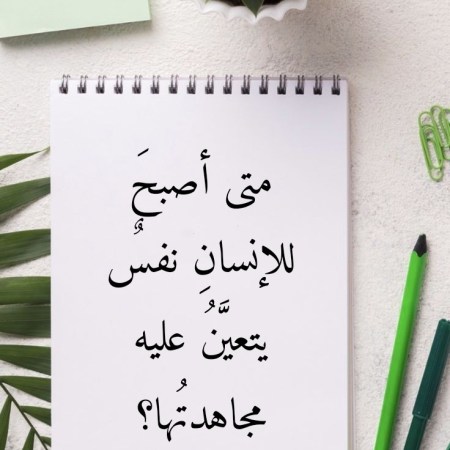 متى أصبحَ
للإنسانِ نفسٌ
يتعيَّنُ عليه
مجاهدتُها؟